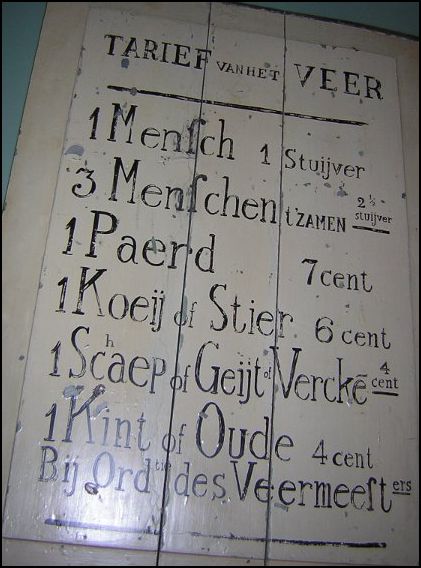 TARIEF VAN HET VEER
1 Menſch 1 Stuijver
3 Menſchen t'ZAMEN 2½ stuijver
1 Paerd 7 cent
1 Koeij of Stier 6 cent
1 Schaep of Geijt of Verckē 4 cent
1 Kint of Oude 4 cent
Bij Ord.tie des Veermeeſters